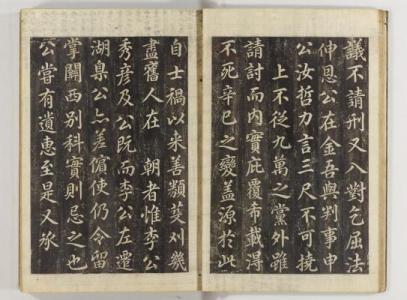 議不請刑又入對乞屈法
伸恩公在金吾與判事申
公汝哲力言三尺不可撓
上不從九萬之黨外雖
請討而內實庇覆希載得
不死辛巳之變盖源於此
自士禍以来善類芟刈幾
盡舊人在 朝者惟李公
秀彦及公既而李公左遷
湖臬公亦差儐使仍令留
掌關西別科實則忌之也
公嘗有遺惠至是又承